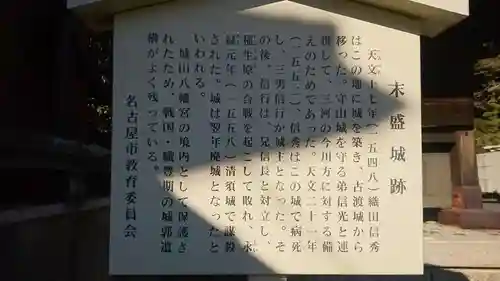 末盛城跡
天文十七年（一五四八）織田信秀
はこの地に城を築き、古渡城から
移った。守山城を守る弟信光と連
携して、三河の今川方に対する備
えのためであった。天文二十一年
（一五五二）、信秀はこの城で病死
し、三男信行が城主となった。そ
の後、信行は、兄信長と対立し、
稲生原の合戦を起こして敗れ、永
禄元年（一五五八）清須城で謀殺
された。城は翌年廃城となったと
いわれる。
城山八幡宮の境内として保護さ
れたため、戦国・織豊期の城郭遺
構がよく残っている。
名古屋市教育委員会